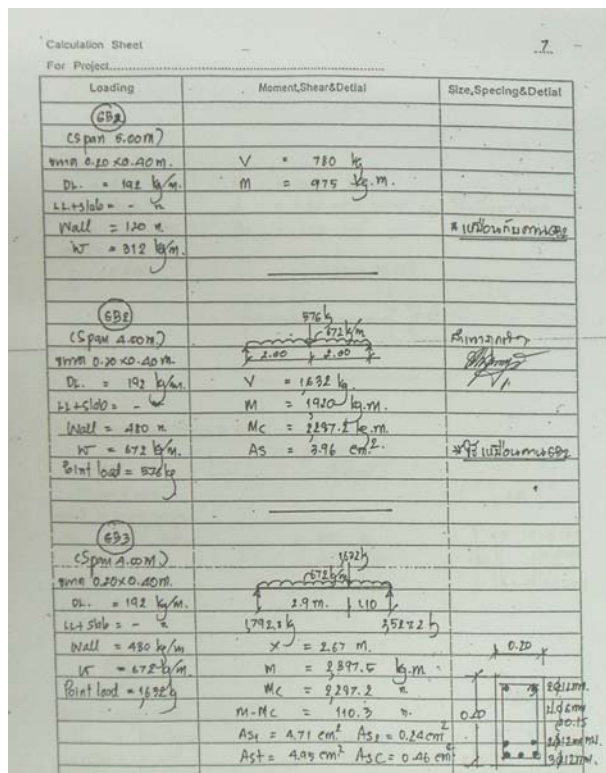 Calculation Sheet
7
For Project
Loading Moment,Shear&Detial Size,Specing&Detial
(Span 5.00m)
ขนาด 0.20 x0.40m. V = 780 kg
DL. = 192 kg/m. M = 975 kg.m.
LL+slab = -
Wall = 120 " 
W = 312 kg/m.
GB2 576 kg
672 kg/m
(Span 4.00m.) 2.00 2.00
ขนาด 0.20 x0.40m.
DL. = 192 kg/m. V = 1,632 kg.
LL+slab = - M = 1920 kg.m.
Wall = 480 " Mc = 2,297.2 kg.m.
W = 672 kg/m. As = 3.96 cm².
Point load = 576 kg
GB3
(Span 4.00m.) 1,632 kg
672 kg/m
ขนาด 0.20x0.40m.
DL. = 192 kg/m. 2.9 m. 1.10
LL+ Slab = - 1,792.8 kg 2,527.2 kg
Wall = 480 kg/m X = 2.67 m. 0.20
W = 672 kg/m. M = 2,397.5 kg.m
Point load = 1,632 kg Mc = 2,297.2 "
M-Mc = 110.3 "
As₁ = 4.71 cm² As₂ = 0.24 cm²
Ast = 4.95 cm² Asc = 0.46 cm²